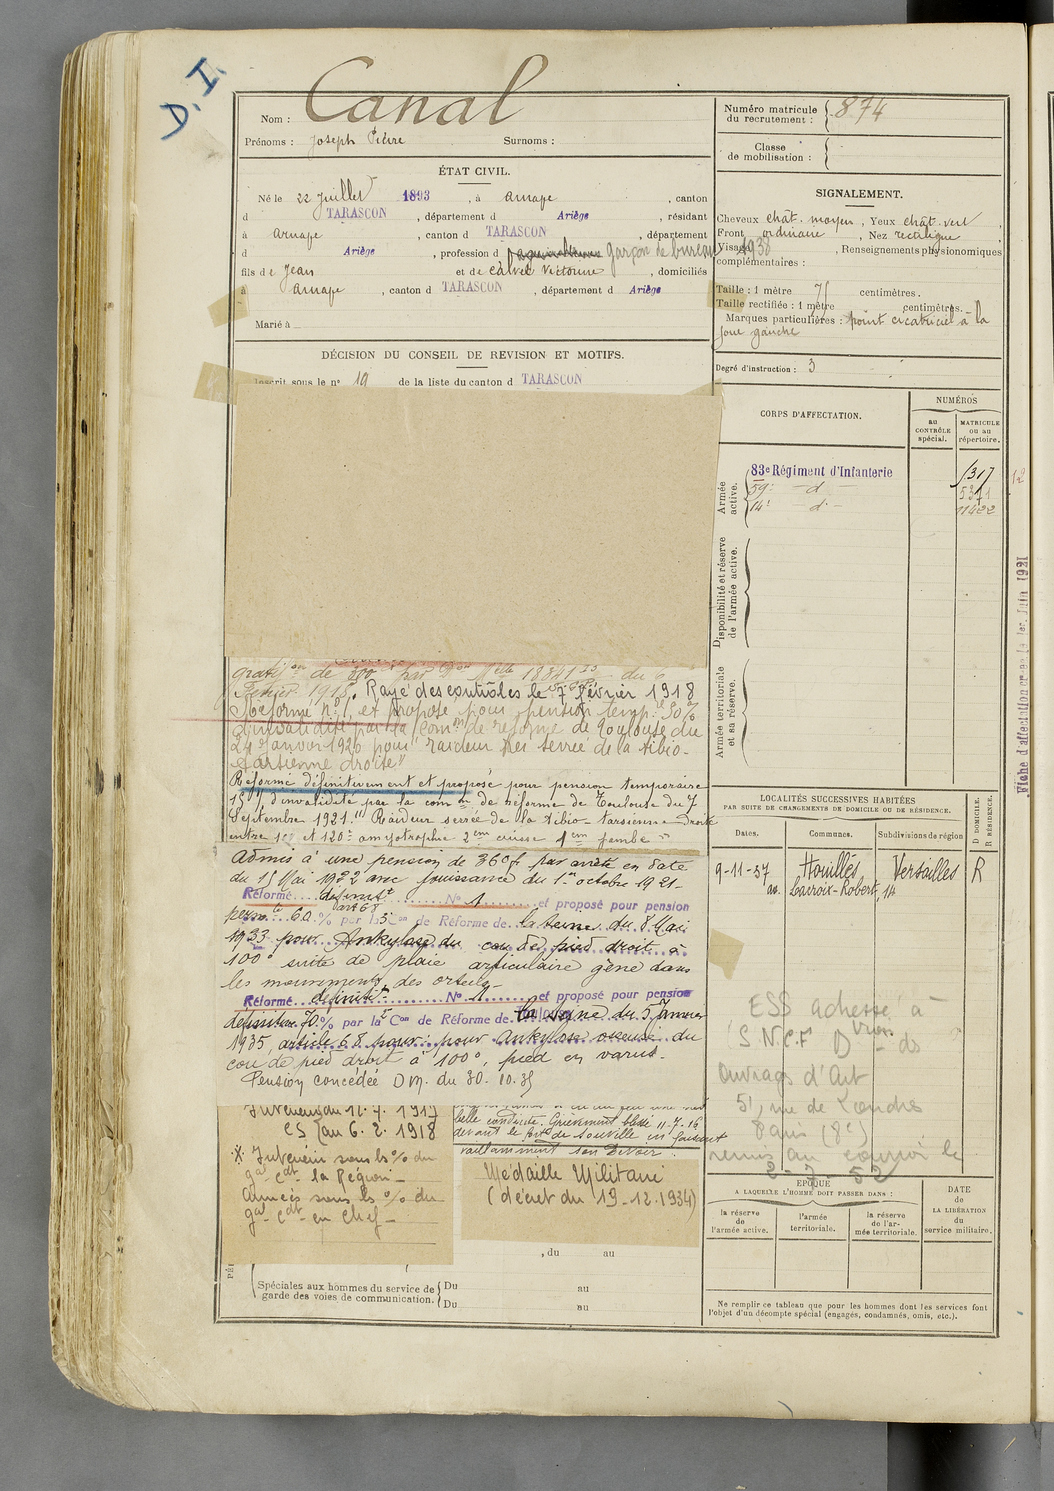 D. I.
Nom : Canal
Prénoms : Joseph Pierre Surnoms :
ÉTAT CIVIL.
Né le 22 Juillet 1893, à Arnave, canton
d TARASCON, département d Ariège, résidant
à Arnave, canton d TARASCON, département
d Ariège, profession d garçon de bureau
fils de Jean et de Calvet Victorine, domiciliés
à Arnave, canton d TARASCON, département d Ariège
Marié à
DÉCISION DU CONSEIL DE REVISION ET MOTIFS.
Inscrit sous le n° 19 de la liste du canton d TARASCON
gratif.on de 300 par Don Melle du 6
Février 1918. Rayé des contrôles le 7 février 1918
Réformé n°1, et proposé pour pension temp.re 30 %
d'invalidité par la Comon de réforme de Toulouse du
24 Janvier 1920 pour "raideur très serrée de la tibio-
tarsienne droite"
Réformé définitivement et proposé pour pension temporaire
15%, d'invalidité par la comon de réforme de Toulouse du 7
Septembre 1921. "Raideur serrée de la tibio-tarsienne droite
entre et 120° amyotrophie 2 cm cuisse 1 cm jambe"
Admis à une pension de 360 f par arrêté en date
du 15 Mai 1922 avec jouissance du 1er octobre 1921-
Réformé définitt N° 1 et proposé pour pension
art 68
permte 60 % par la 5e Con de Réforme de la Seine du 8 Mai
1933 pour Ankylose du cou de pied droit à
100° suite de plaie articulaire gêne dans
les mouvements des orteils-
Réformé définitt N° 1 et proposé pour pension
définitive 70 % par la Con de Réforme de la Seine du 3 Janvier
1935 article 68 pour : pour Ankylose osseuse du
cou de pied droit à 100°, pied en varus-
Pension concédée D M. du 30. 10. 35
Intérieur du 12. 7. 1917
CS au 6. 2. 1918
* Intérieur sous ls % du
gal Cdt la Région-
Armées sous ls % du
gal Cdt en Chef-
belle conduite. Grièvement blessé 11-7-16
devant le fort de Souville en faisant
vaillamment son devoir.
Médaille Militaire
(décret du 19-12.1934)
, du au
Spéciales aux hommes du service de garde des voies de communication. Du au
Du au
Numéro matricule du recrutement : 874
Classe de mobilisation :
SIGNALEMENT.
Cheveux chât. moyen, Yeux chât. vert,
Front ordinaire, Nez rectiligne
Visage, Renseignements physionomiques
1938
complémentaires :
Taille : 1 mètre 71 centimètres.
Taille rectifiée : 1 mètre centimètres.
Marques particulières : point cicatriciel à la
joue gauche
Degré d'instruction : 3
CORPS D'AFFECTATION.
NUMÉROS
au CONTRÔLE spécial.
MATRICULE ou au répertoire.
Armée active.
83e Régiment d'Infanterie
59e — d° —
5371
14e — d° —
11422
12
Disponibilité et réserve de l'armée active.
Armée territoriale et sa réserve.
Fiche d'affectation créée le 1er Juin 1921
LOCALITÉS SUCCESSIVES HABITÉES
PAR SUITE DE CHANGEMENTS DE DOMICILE OU DE RÉSIDENCE.
Dates.
Communes.
Subdivisions de région
D DOMICILE.
R RÉSIDENCE.
9-11-57 Houilles Versailles R
av. Lacroix-Robert, 14
ESS adressé à
S N.C.F Don des
Ouvrages d'Art
51, rue de Londres
Paris (8e)
remis au courrier le
2-7-52
ÉPOQUE
A LAQUELLE L'HOMME DOIT PASSER DANS :
DATE DE LA LIBÉRATION du service militaire.
la réserve de l'armée active.
l'armée territoriale.
la réserve de l'armée territoriale.
Ne remplir ce tableau que pour les hommes dont les services font
l'objet d'un décompte spécial (engagés, condamnés, omis, etc.).